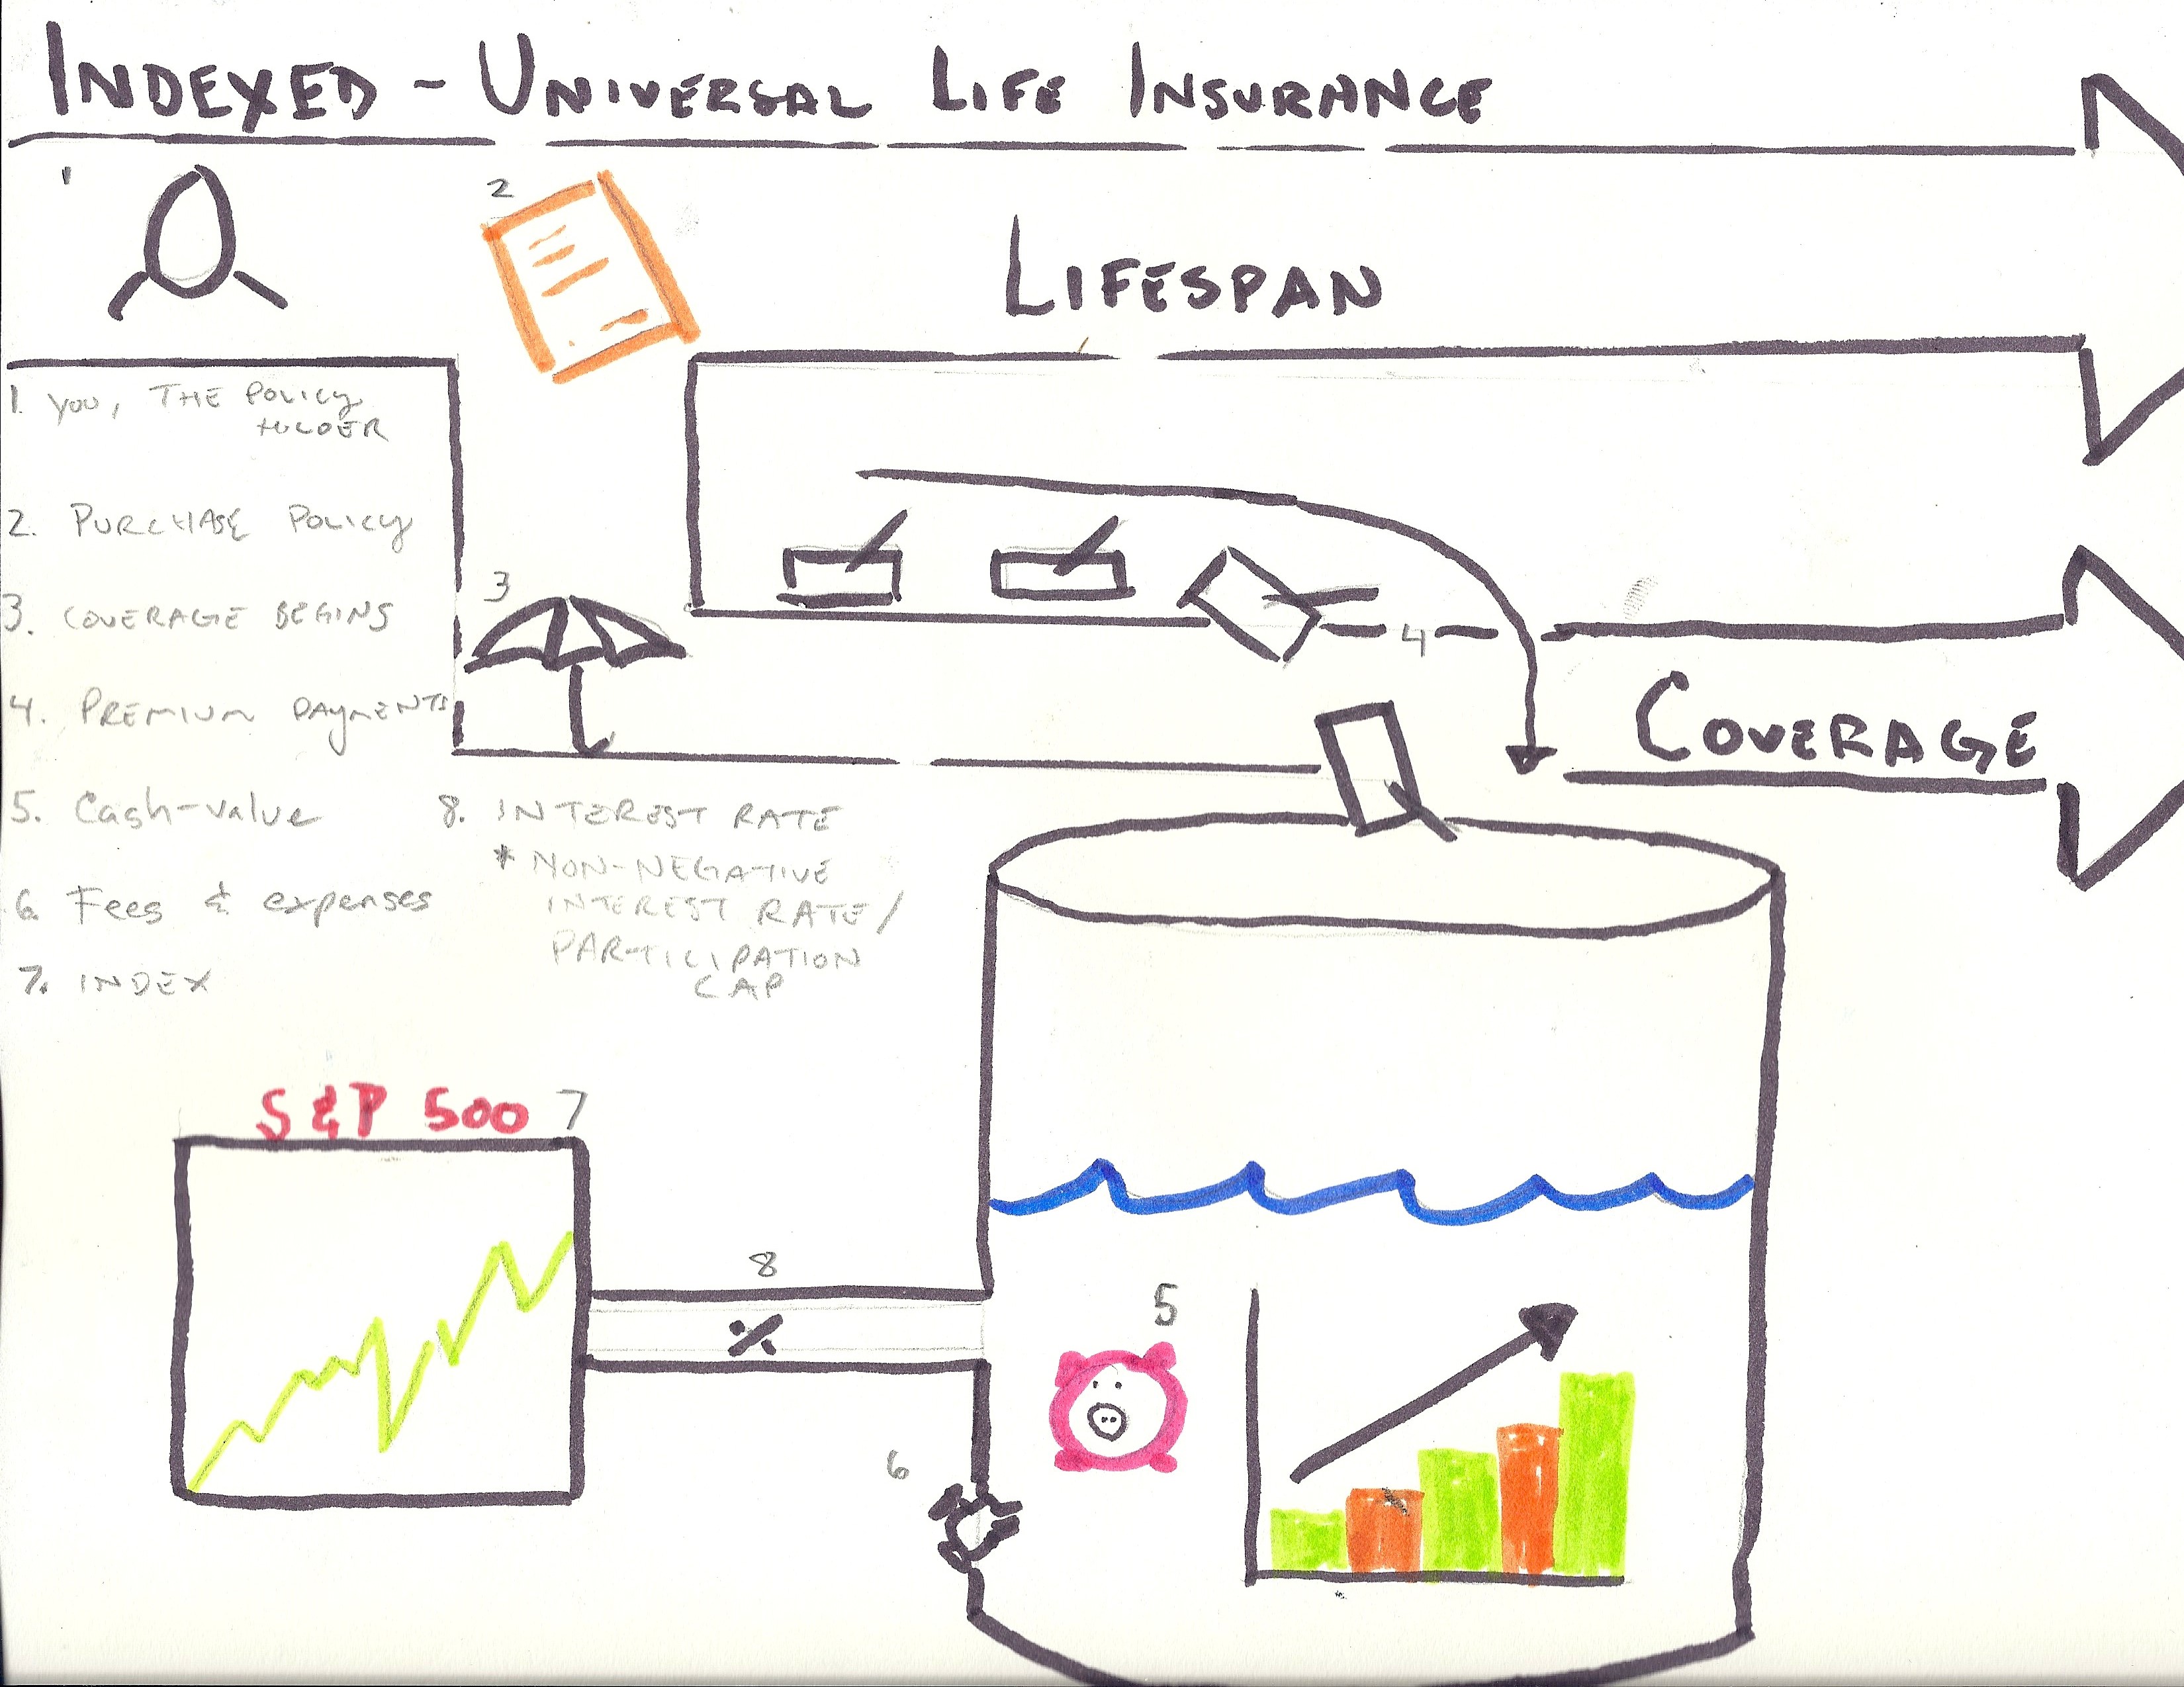 INDEXED - UNIVERSAL LIFE INSURANCE
1
2
LIFESPAN
1. YOU, THE POLICY
HOLDER
2. PURCHASE POLICY
3. COVERAGE BEGINS
3
4
4. PREMIUM PAYMENTS
COVERAGE
5. Cash-value
6. Fees & expenses
7. INDEX
8. INTEREST RATE
* NON-NEGATIVE
INTEREST RATE/
PARTICIPATION
CAP
S&P 500 7
8
%
5
6